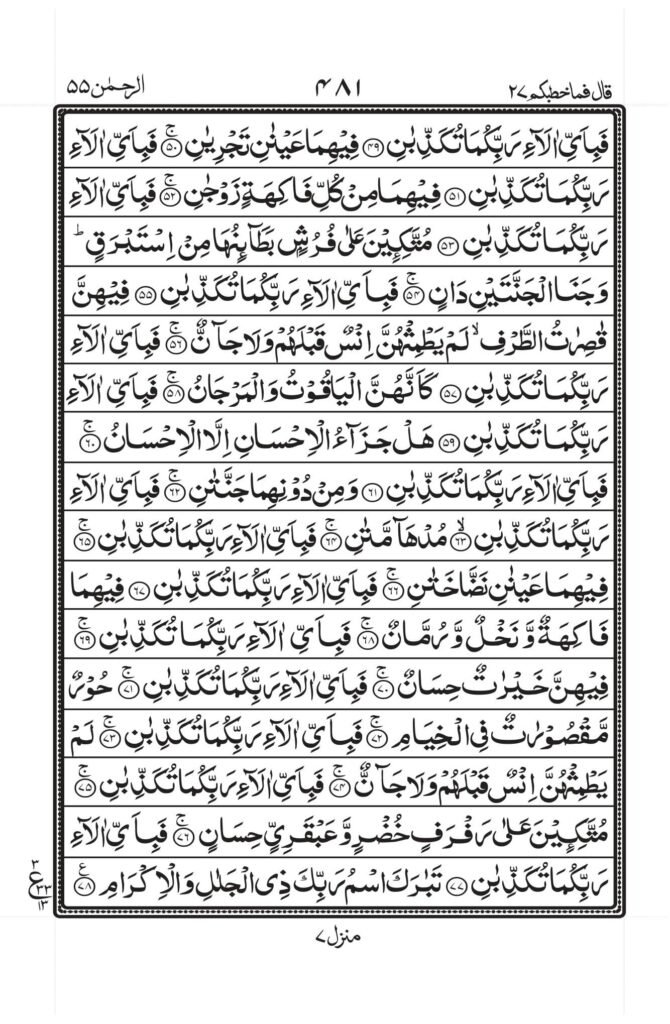 قال فماخطبكم ۲۷
۴۸۱
الرحمٰن ۵۵
فَبِاَيِّ اٰلَآءِ رَبِّكُمَا تُكَذِّبٰنِ ﴿۴۹﴾ فِيْهِمَا عَيْنٰنِ تَجْرِيٰنِ ﴿۵۰﴾ۚ فَبِاَيِّ اٰلَآءِ
رَبِّكُمَا تُكَذِّبٰنِ ﴿۵۱﴾ فِيْهِمَا مِنْ كُلِّ فَاكِهَةٍ زَوْجٰنِ ﴿۵۲﴾ۚ فَبِاَيِّ اٰلَآءِ
رَبِّكُمَا تُكَذِّبٰنِ ﴿۵۳﴾ مُتَّكِـِٕيْنَ عَلٰى فُرُشٍۭ بَطَآىِٕنُهَا مِنْ اِسْتَبْرَقٍ ؕ
وَجَنَا الْجَنَّتَيْنِ دَانٍ ﴿۵۴﴾ۚ فَبِاَيِّ اٰلَآءِ رَبِّكُمَا تُكَذِّبٰنِ ﴿۵۵﴾ فِيْهِنَّ
قٰصِرٰتُ الطَّرْفِ ۙ لَمْ يَطْمِثْهُنَّ اِنْسٌ قَبْلَهُمْ وَلَا جَآنٌّ ﴿۵۶﴾ۚ فَبِاَيِّ اٰلَآءِ
رَبِّكُمَا تُكَذِّبٰنِ ﴿۵۷﴾ كَاَنَّهُنَّ الْيَاقُوْتُ وَالْمَرْجَانُ ﴿۵۸﴾ۚ فَبِاَيِّ اٰلَآءِ
رَبِّكُمَا تُكَذِّبٰنِ ﴿۵۹﴾ هَلْ جَزَآءُ الْاِحْسَانِ اِلَّا الْاِحْسَانُ ﴿۶۰﴾ۚ
فَبِاَيِّ اٰلَآءِ رَبِّكُمَا تُكَذِّبٰنِ ﴿۶۱﴾ وَمِنْ دُوْنِهِمَا جَنَّتٰنِ ﴿۶۲﴾ۚ فَبِاَيِّ اٰلَآءِ
رَبِّكُمَا تُكَذِّبٰنِ ﴿۶۳﴾ۙ مُدْهَآمَّتٰنِ ﴿۶۴﴾ۚ فَبِاَيِّ اٰلَآءِ رَبِّكُمَا تُكَذِّبٰنِ ﴿۶۵﴾ۚ
فِيْهِمَا عَيْنٰنِ نَضَّاخَتٰنِ ﴿۶۶﴾ۚ فَبِاَيِّ اٰلَآءِ رَبِّكُمَا تُكَذِّبٰنِ ﴿۶۷﴾ فِيْهِمَا
فَاكِهَةٌ وَّ نَخْلٌ وَّ رُمَّانٌ ﴿۶۸﴾ۚ فَبِاَيِّ اٰلَآءِ رَبِّكُمَا تُكَذِّبٰنِ ﴿۶۹﴾ۚ
فِيْهِنَّ خَيْرٰتٌ حِسَانٌ ﴿۷۰﴾ۚ فَبِاَيِّ اٰلَآءِ رَبِّكُمَا تُكَذِّبٰنِ ﴿۷۱﴾ۚ حُوْرٌ
مَّقْصُوْرٰتٌ فِي الْخِيَامِ ﴿۷۲﴾ۚ فَبِاَيِّ اٰلَآءِ رَبِّكُمَا تُكَذِّبٰنِ ﴿۷۳﴾ۚ لَمْ
يَطْمِثْهُنَّ اِنْسٌ قَبْلَهُمْ وَلَا جَآنٌّ ﴿۷۴﴾ۚ فَبِاَيِّ اٰلَآءِ رَبِّكُمَا تُكَذِّبٰنِ ﴿۷۵﴾ۚ
مُتَّكِـِٕيْنَ عَلٰى رَفْرَفٍ خُضْرٍ وَّعَبْقَرِيٍّ حِسَانٍ ﴿۷۶﴾ۚ فَبِاَيِّ اٰلَآءِ
رَبِّكُمَا تُكَذِّبٰنِ ﴿۷۷﴾ تَبٰرَكَ اسْمُ رَبِّكَ ذِي الْجَلٰلِ وَالْاِكْرَامِ ﴿۷۸﴾ع
۳
ع ۳۳
۱۳
منزل ۷